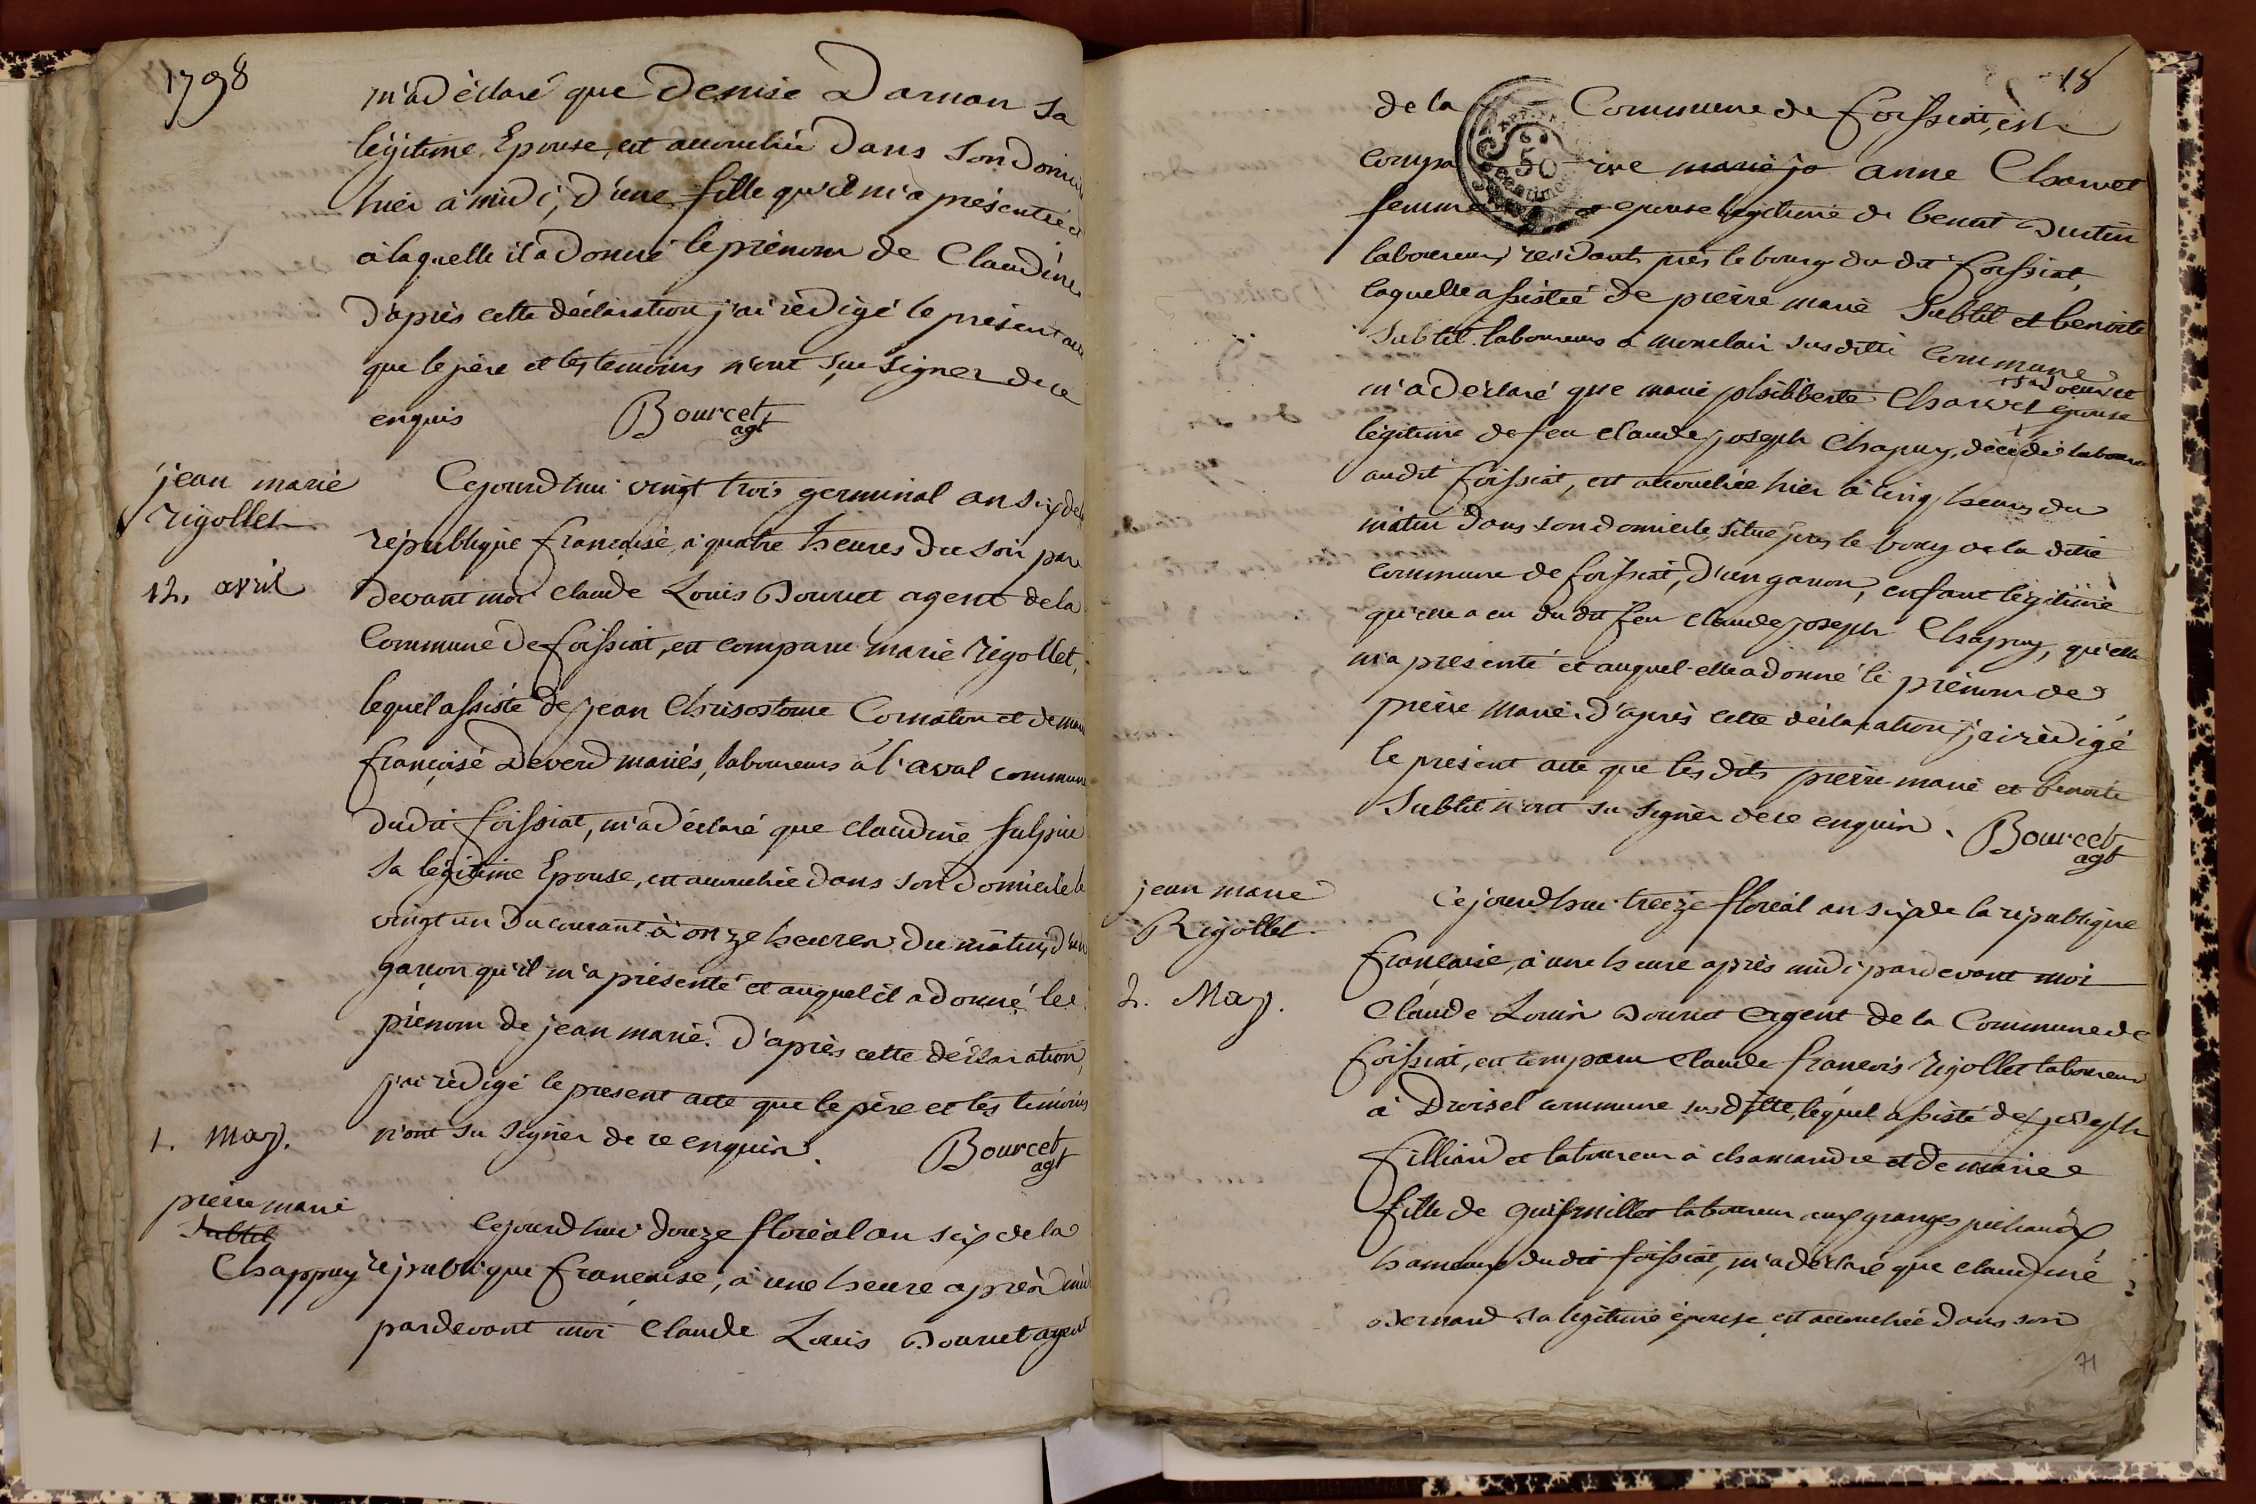 1798
m'a déclaré que Denise Darnan sa
légitime Epouse, est accouchée dans son domicile
hier à midi, d'une fille qu'il m'a présentée et
à laquelle il a donné le prénom de Claudine
d'après cette déclaration j'ai rédigé le présent acte
que le père et les témoins n'ont sçu signer de ce
enquis Bourcet
agt
jean marie
rigollet
12, avril
Cejourd'hui vingt trois germinal an six de la
république française, à quatre heures du soir par
devant moi Claude Louis Bourcet agent de la
Commune de foissiat, est comparu marie rigollet,
lequel assisté de jean Chrisostome Comaton et de marie
françoise Deverd mariés, laboureurs à l'aval commune
dudit foissiat, m'a déclaré que claudine sulpice
sa légitime Epouse, est accouchée dans son domicile le
vingt un du courant à onze heures du matin, d'un
garçon qu'il m'a présenté et auquel il a donné le
prénom de jean marie. D'après cette déclaration,
j'ai rédigé le present acte que le père et les témoins
n'ont su signer de ce enquis. Bourcet
agt
1. May.
pierre marie
Subtil
Chappuy
Cejourd'hui douze floréal an six de la
république française, à une heure après midi
pardevant moi Claude Louis Bourcet agent
18
de la Commune de foissiat, est
compa rue marie jo anne Charvet
femme epouse légitime de benoit
laboureurs residants près le bourg du dit foissiat,
laquelle assistée de pierre marie Subtil et benoite
Subtil laboureurs à monclair susditte Commune
m'a déclaré que marie philiberte Charvet + sa soeur et epouse
légitime de feu claude joseph Chapuy, décédé laboureur
audit foissiat, est accouchée hier à cinq heures du
matin dans son domicile situé près le bourg de la ditte
commune de foissiat, d'un garçon, enfant légitime
qu'elle a eu du dit feu claude joseph Chapuy, qu'elle
m'a présenté et auquel elle a donné le prénom de
pierre marie. d'après cette déclaration j'ai rédigé
le présent acte que les dits pierre marie et benoite
Subtil n'ont su signer de ce enquis. Bourcet
agt
jean marie
Rigollet
2. May.
Cejourd'hui treize floréal an six de la république
française, à une heure après midi pardevant moi
Claude Louis Bourcet agent de la Commune de
foissiat, est comparu claude françois rigollet laboureur
à Droisel commune susditte, lequel assisté de joseph
filliard et laboureur à chamandre et de marie
fille de laboureur aux granges pichaux
hameaux du dit foissiat, m'a déclaré que claudine
bernard sa légitime épouse est accouchée dans son
71